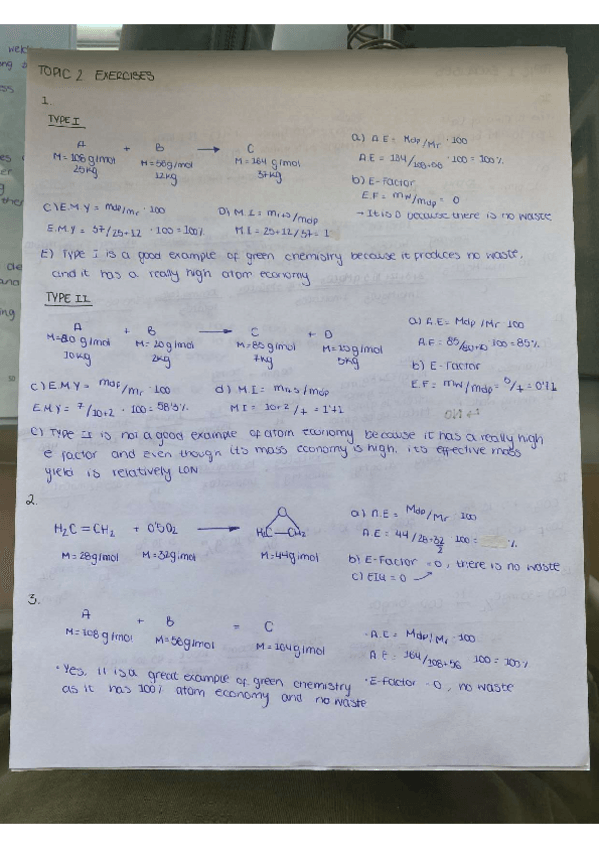 TOPIC 2 EXERCISES
1.
TYPE I
A + B → C
M= 108 g/mol M= 56g/mol M= 164 g/mol
25kg 12kg 37kg
a) A.E = Mdp/Mr · 100
AE = 164/108+56 · 100 = 100%
b) E-Factor
E.F = mw/mdp = 0
→ It is 0 because there is no waste
C) E.M.Y = mdp/mr · 100
E.M.Y = 37/25+12 · 100 = 100%
D) M.I = mr+s/mdp
M I = 25+12/37 = 1
E) TYPE I is a good example of green chemistry because it produces no waste,
and it has a really high atom economy
TYPE II
A + B → C + D
M=80 g/mol M= 20g/mol M=85g/mol M= 15g/mol
10kg 2kg 7kg 5kg
a) A.E= Mdp/Mr 100
A.E = 85/80+20 100 = 85%
b) E-Factor
E.F = mw/mdp = 5/7 = 0'71
c) E.M.Y = mdp/mr · 100
E.M.Y = 7/10+2 · 100 = 58'3%
d) M I = mr+s/mdp
M I = 10+2/7 = 1'71
e) TYPE II is not a good example of atom economy because it has a really high
e factor and even though its mass economy is high, its effective mass
yield is relatively LOW
2.
H₂C=CH₂ + 0'5O₂ → O H₂C—CH₂
M=28g/mol M=32g/mol M=44g/mol
a) A.E = Mdp/Mr · 100
A E = 44/28+32/2 100 = %
b) E-Factor = 0, there is no waste
c) EIQ = 0
3.
A + B = C
M= 108g/mol M= 56g/mol M= 164g/mol
· A.E = Mdp/Mr · 100
A E = 164/108+56 100 = 100%
· Yes, It is a great example of green chemistry
as it has 100% atom economy and no waste
· E-factor = 0, no waste